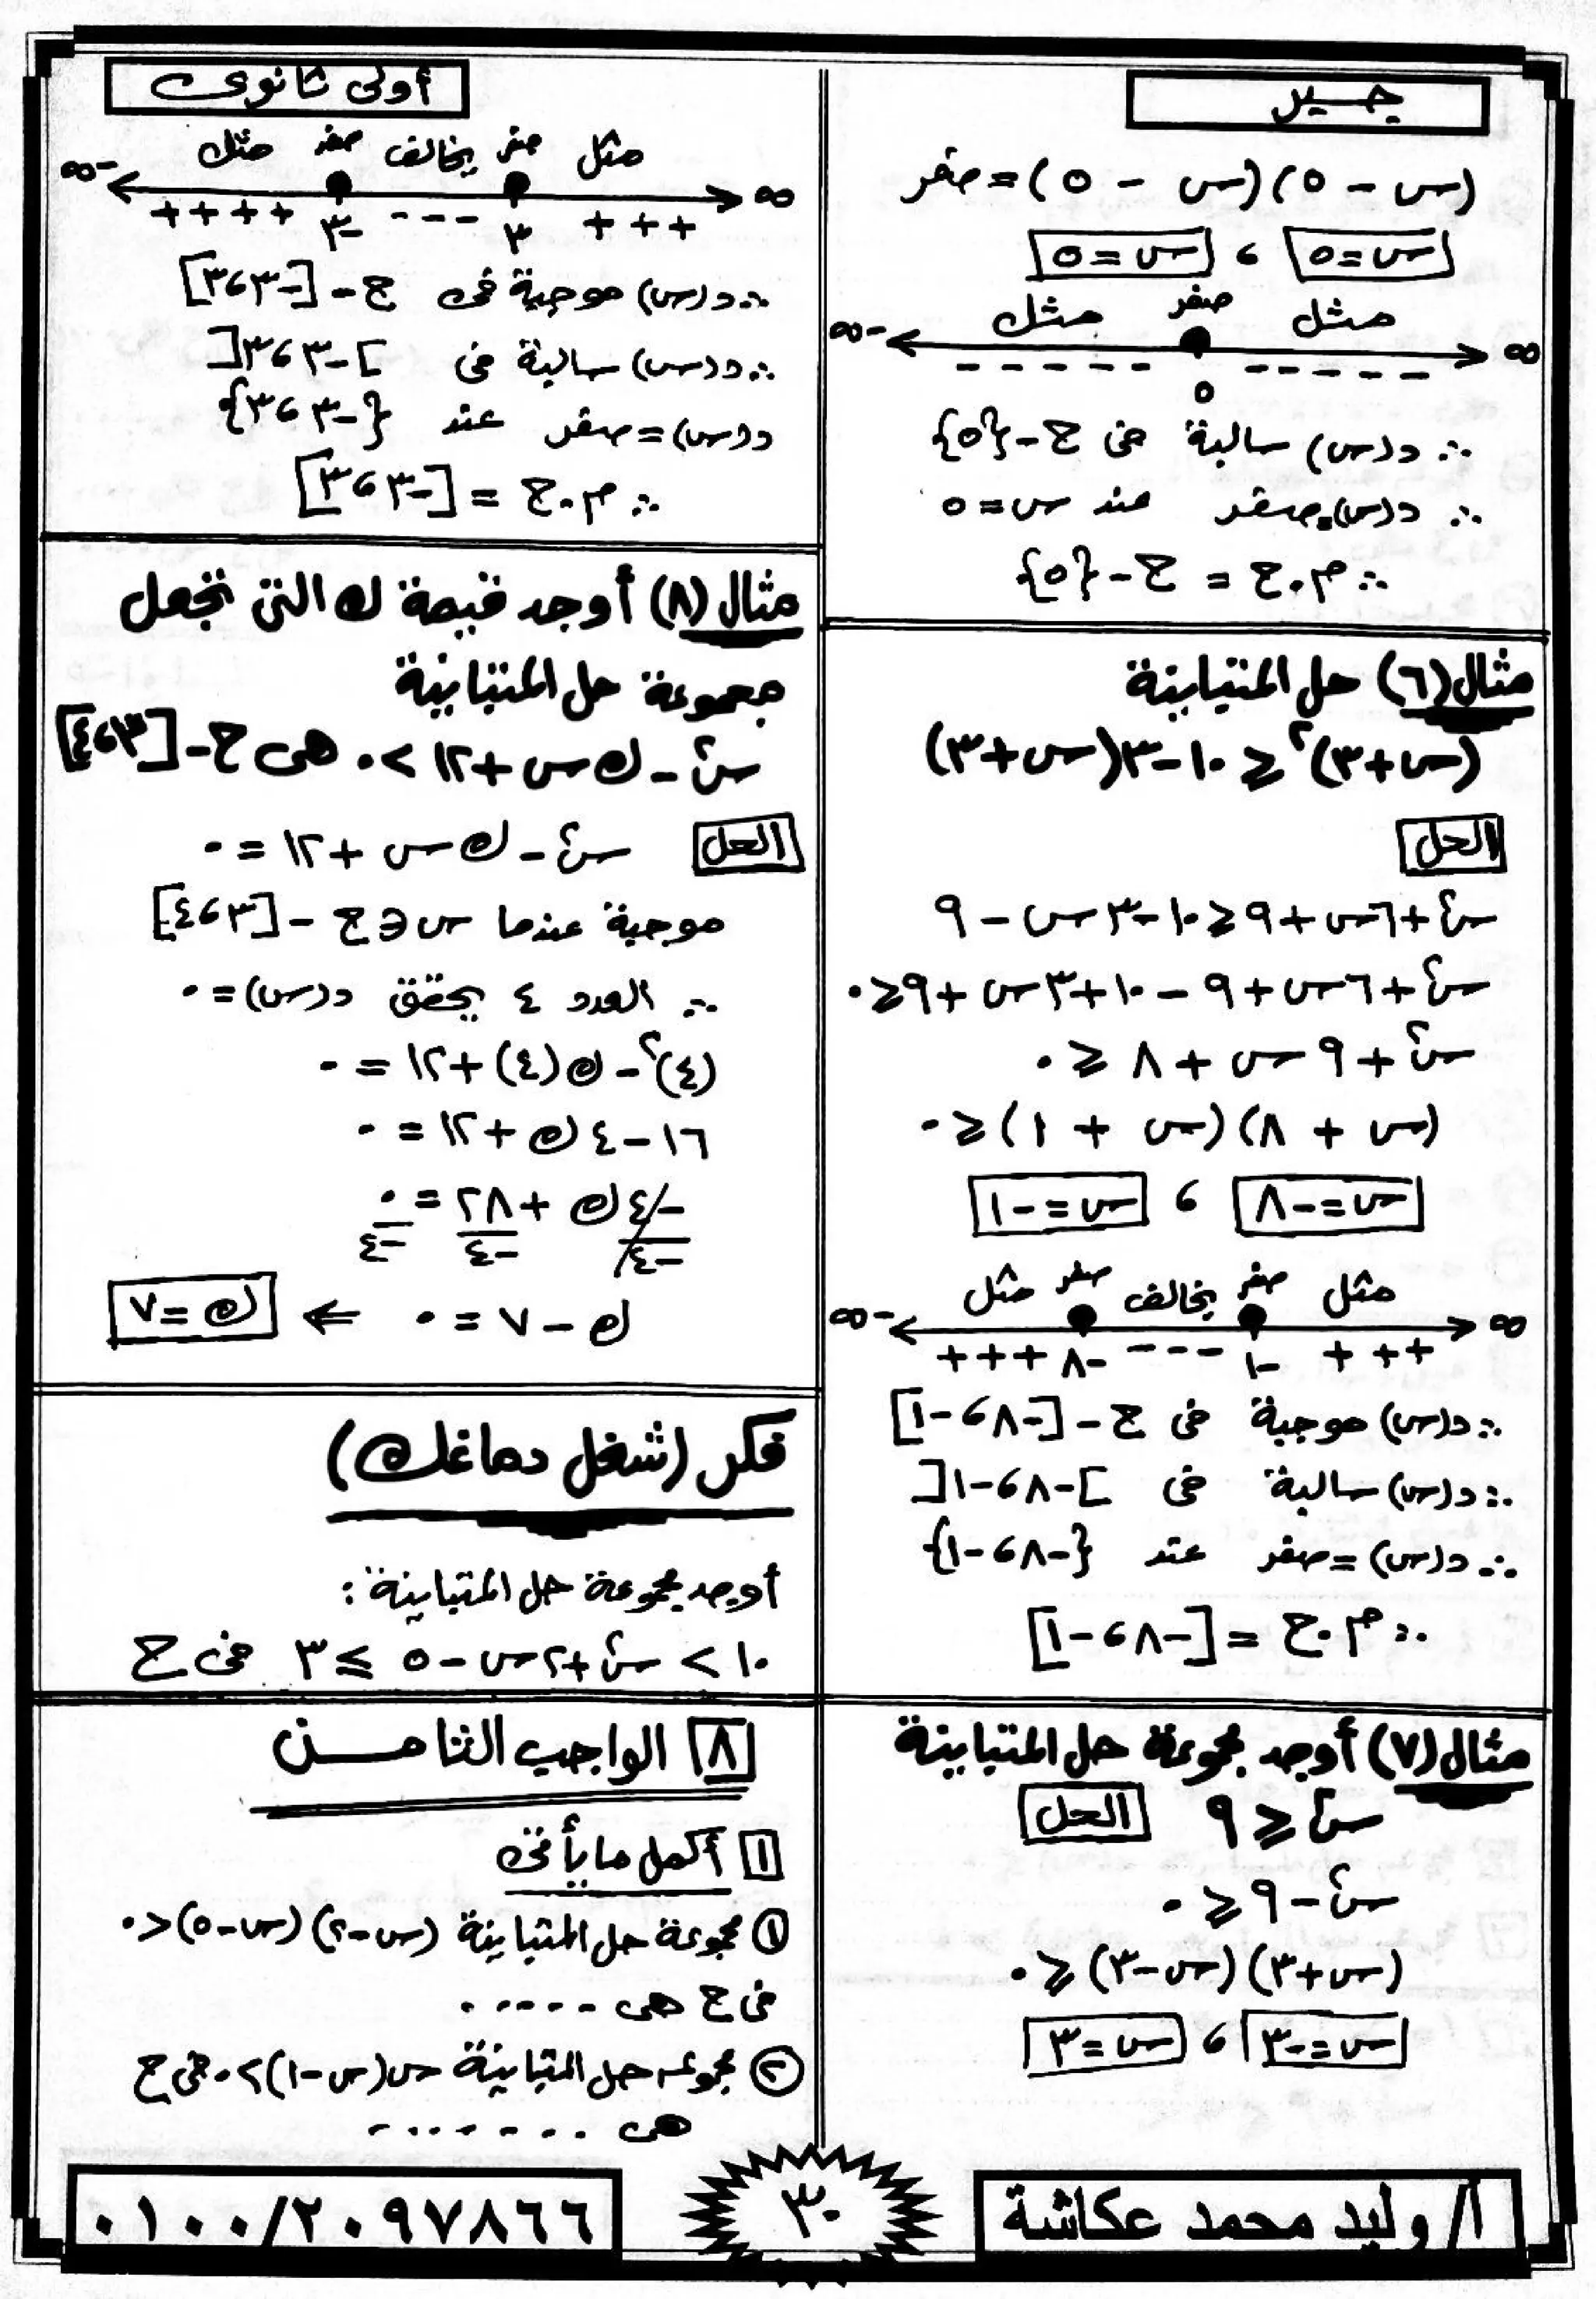 جبر
(س - ٥)(س - ٥) = صفر
س = ٥ ، س = ٥
مثل صفر مثل
∞ - - - - - - - - - - -∞
٥
∴ د(س) سالبة فى ح - {٥}
∴ د(س) = صفر عند س = ٥
∴ م.ح = ح - {٥}
مثال (٦) حل المتباينة
(س+٣)² ≤ ١٠ - ٣(س+٣)
الحل
س² + ٦س + ٩ ≤ ١٠ - ٣س - ٩
س² + ٦س + ٩ - ١٠ + ٣س + ٩ ≤ ٠
س² + ٩س + ٨ ≤ ٠
(س + ٨)(س + ١) ≤ ٠
س = -٨ ، س = -١
مثل صفر يخالف صفر مثل
∞ + + + -١ - - - -٨ + + + -∞
∴ د(س) موجبة فى ح - [-٨ ، -١]
∴ د(س) سالبة فى ]-٨ ، -١[
∴ د(س) = صفر عند {-٨ ، -١}
∴ م.ح = [-٨ ، -١]
مثال (٧) أوجد مجموعة حل المتباينة
س² ≤ ٩ الحل
س² - ٩ ≤ ٠
(س+٣)(س-٣) ≤ ٠
س = -٣ ، س = ٣
أولى ثانوى
مثل صفر يخالف صفر مثلك
∞ + + + ٣ - - - -٣ + + + + -∞
∴ د(س) موجبة فى ح - [-٣ ، ٣]
∴ د(س) سالبة فى ]-٣ ، ٣[
د(س) = صفر عند {-٣ ، ٣}
∴ م.ح = [-٣ ، ٣]
مثال (٨) أوجد قيمة ك التى تجعل
مجموعة حل المتباينة
س² - ك س + ١٢ > ٠ هى ح - [٣ ، ٤]
الحل س² - ك س + ١٢ = ٠
موجبة عندما س ∈ ح - [٣ ، ٤]
∴ العدد ٤ يحقق د(س) = ٠
(٤)² - ك(٤) + ١٢ = ٠
١٦ - ٤ك + ١٢ = ٠
-٤ك/-٤ + ٢٨/-٤ = ٠/-٤
ك - ٧ = ٠ ⇐ ك = ٧
فكر (شغل دماغك)
أوجد مجموعة حل المتباينة :
١٠ > س² + ٢س - ٥ ≥ ٣ فى ح
٨ الواجب الثامن
١ أكمل ما يأتى
① مجموعة حل المتباينة (س-٢)(س-٥) < ٠
فى ح هى .....
② مجموعة حل المتباينة س(س-١) > ٠ فى ح
هى .......
أ/ وليد محمد عكاشة
٣٠
٠١٠٠/٢٠٩٧٨٦٦